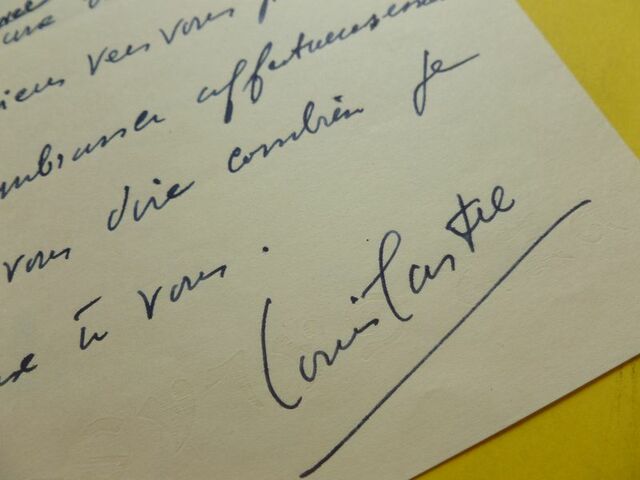 une
viens vers vous
embrasser affectueusement
vous dire combien je
à vous.
Louis Castre